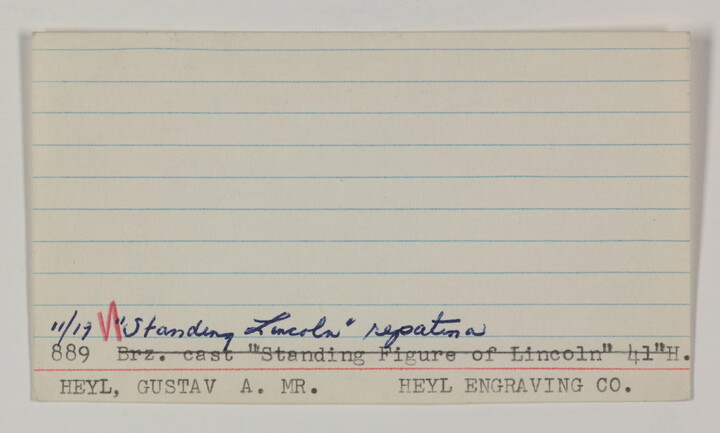 11/19 "Standing Lincoln" repatina
889 Brz. cast "Standing Figure of Lincoln" 41"H.
HEYL, GUSTAV A. MR. HEYL ENGRAVING CO.